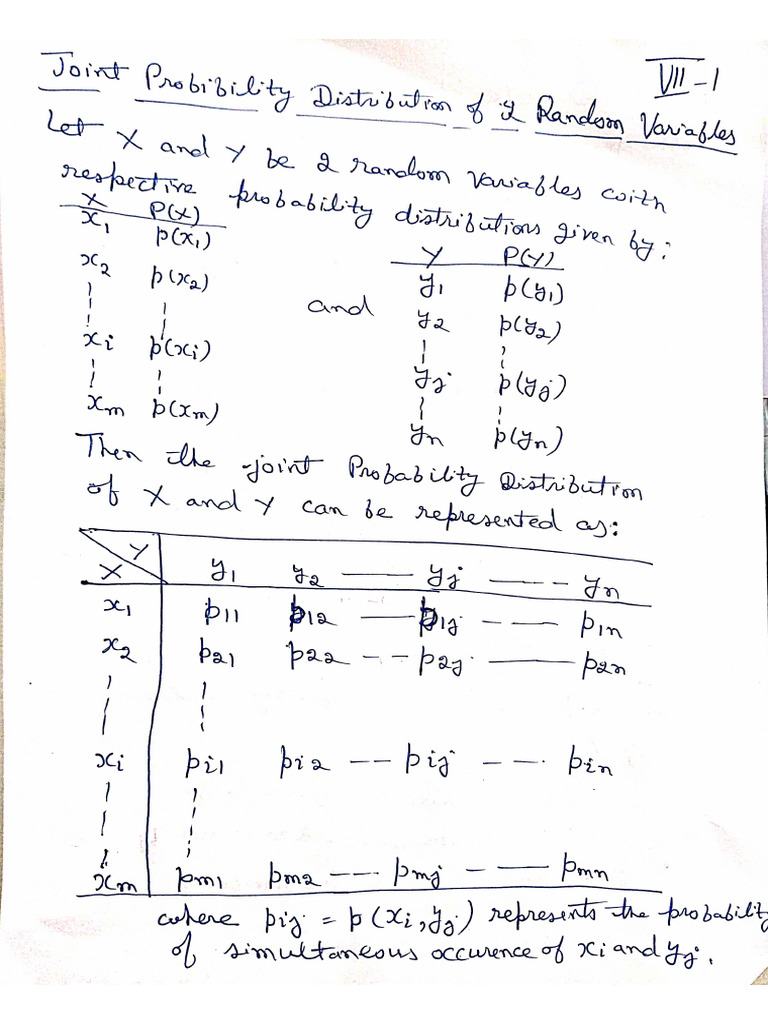 VII-1
Joint Probibility Distribution of 2 Random Variables
Let X and Y be 2 random variables with
respective probability distributions given by:
X P(X)
x1 p(x1)
x2 p(x2)
xi p(xi)
xm p(xm)
and
Y P(Y)
y1 p(y1)
y2 p(y2)
yj p(yj)
yn p(yn)
Then the joint Probability Distribution
of X and Y can be represented as:
X Y y1 y2 —— yj --- yn
x1 p11 p12 —— p1j --- p1n
x2 p21 p22 -- p2j —— p2n
xi pi1 pi2 -- pij --- pin
xm pm1 pm2 --- pmj - —— pmn
where pij = p(xi, yj) represents the probability
of simultaneous occurence of xi and yj.